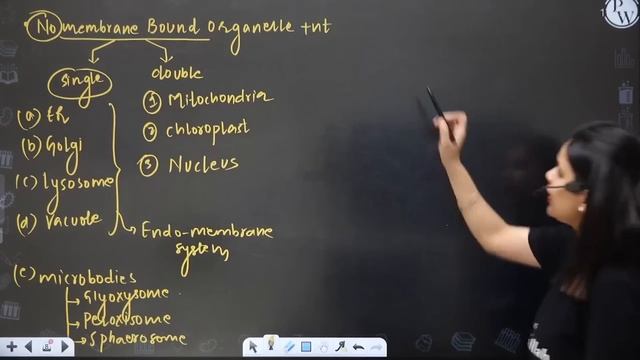 No membrane Bound organelle +nt
single
double
(a) ER
(b) Golgi
(c) lysosome
(d) vacuole
① Mitochondria
② chloroplast
③ Nucleus
Endo-membrane
system
(e) microbodies
Glyoxysome
Peroxysome
Sphaerosome
P
W